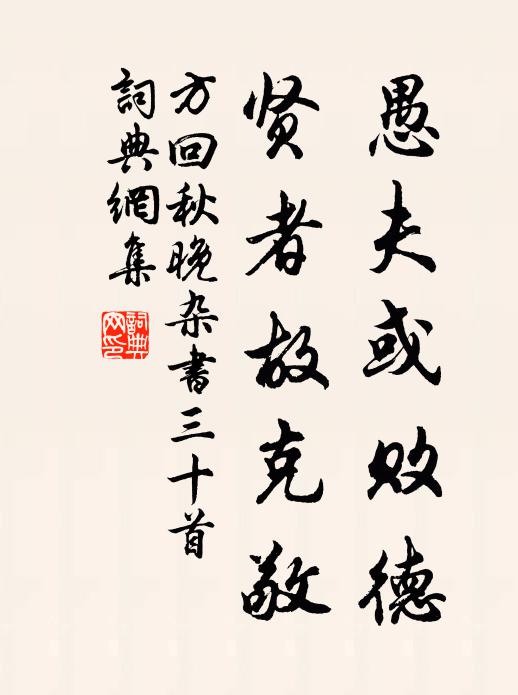 愚夫或败德
贤者故克敬
方回秋晚杂書三十首
詞典網集
詞典網印